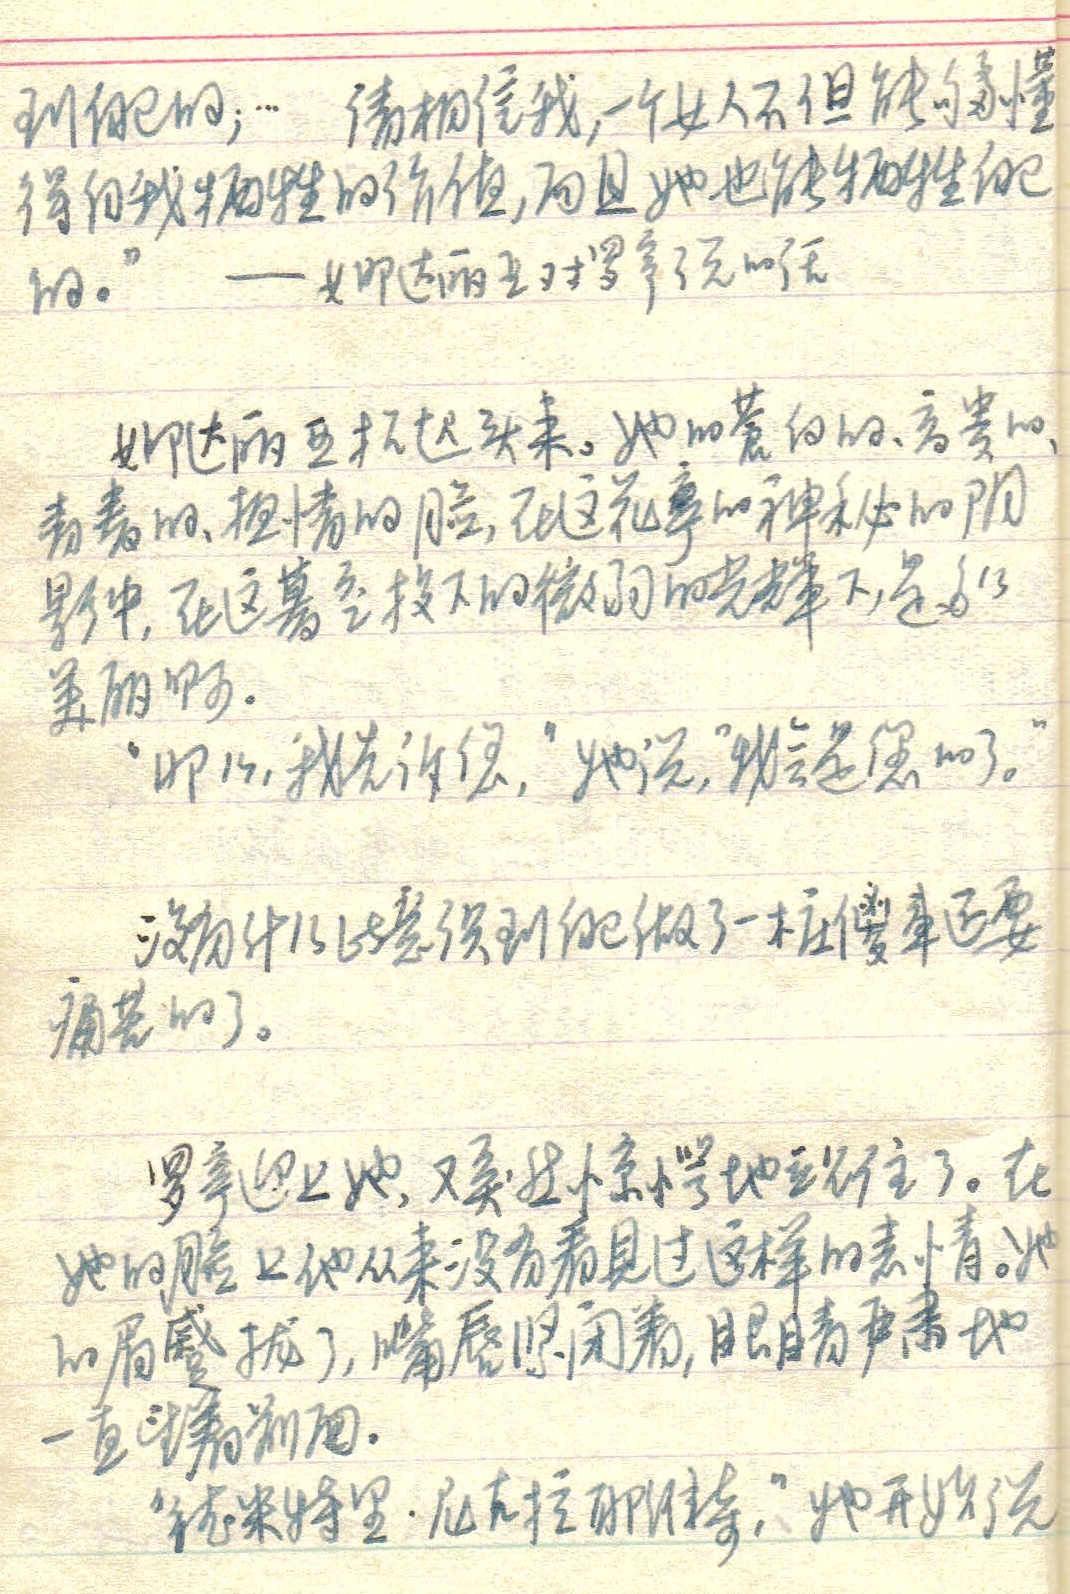 到自己的;… 请相信我,一个女人不但能够懂
得自我牺牲的价值,而且她也能牺牲自己
的。” ——娜达丽亚对罗亭说的话
娜达丽亚抬起头来。她的苍白的、高贵的、
青春的、热情的脸,在这花亭的神秘的阴
影中,在这暮空投下的微弱的光辉下,是多么
美丽啊。
“那么,我告诉您,”她说,“我会是您的了。”
没有什么比意识到自己做了一桩傻事还要
痛苦的了。
罗亭迎上她,又突然惊愕地站住了。在
她的脸上他从来没有看见过这样的表情。她
的眉蹙拢了,嘴唇紧闭着,眼睛严肃地
一直望着前面。
“德米特里·尼克拉耶维奇,”她开始说